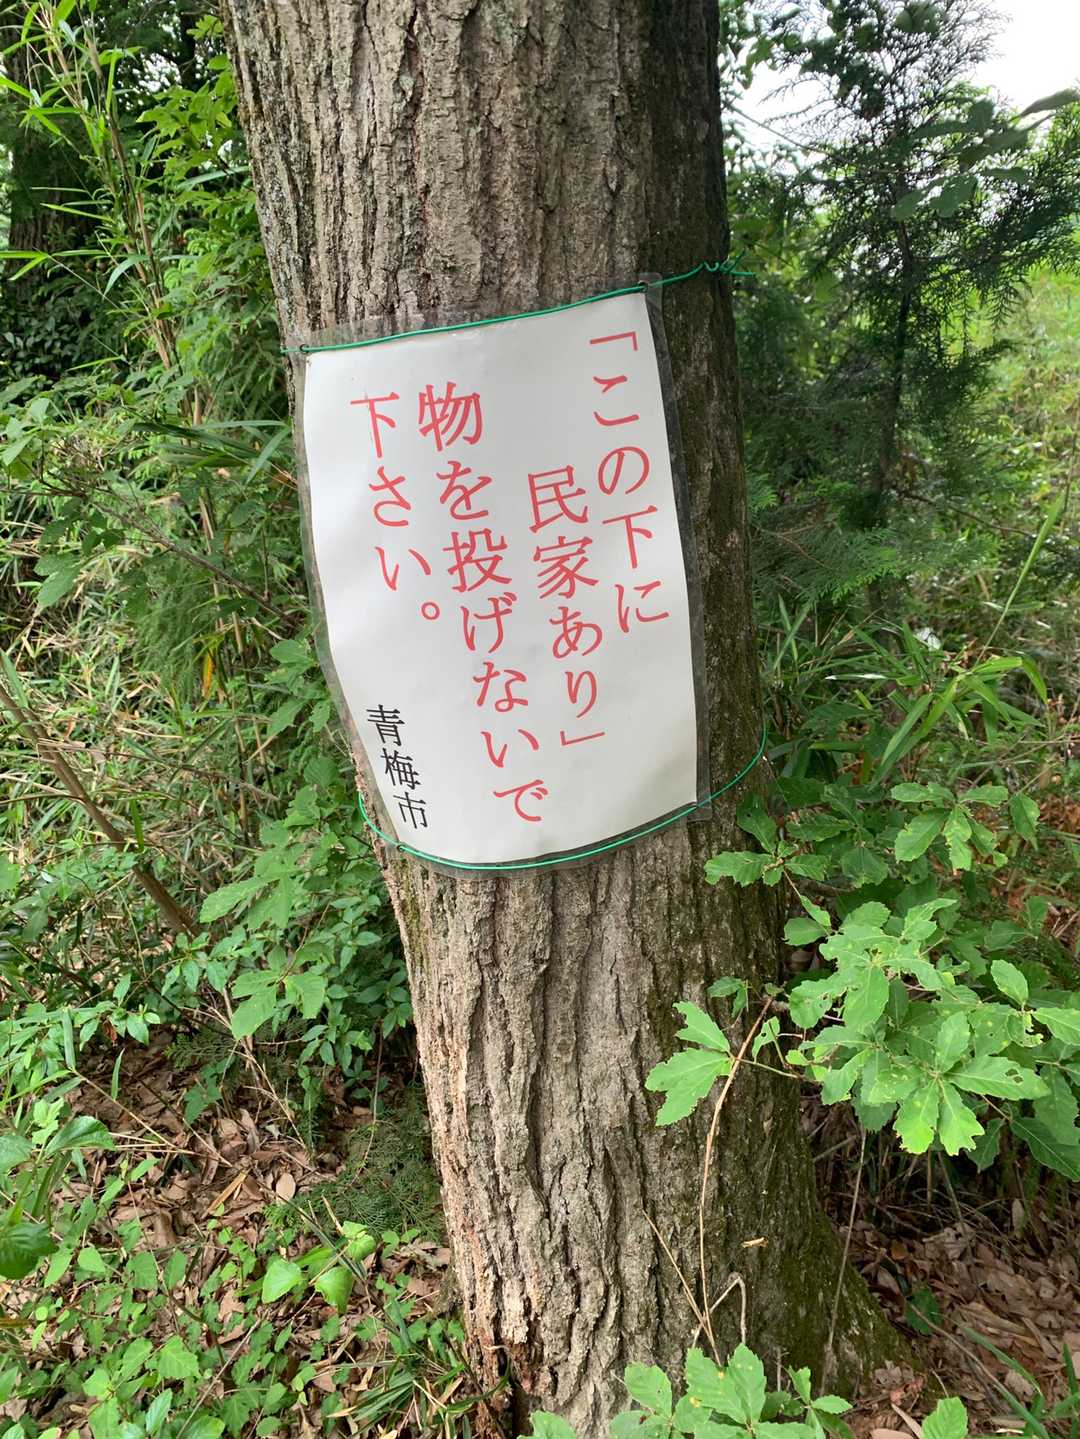 「この下に
民家あり」
物を投げないで
下さい。
青梅市